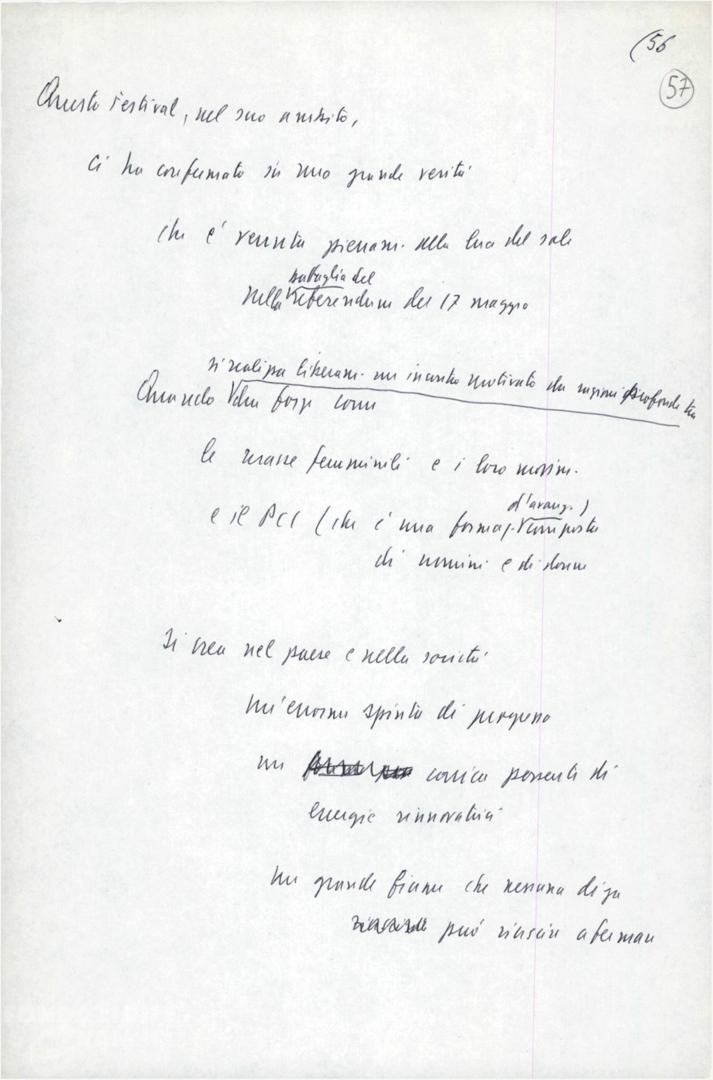 (56
57
Questo festival, nel suo ambito,
ci ha confermato in una grande verità
che è venuta pienam. alla luce del sole
battaglia del
nella referendum del 17 maggio
si realizza liberam. un incontro motivato da ragioni profonde tra
Quando due forze come
le masse femminili e i loro movim.
d'avang.)
e il PCI (che è una formaz. composta
di uomini e di donne
Si crea nel paese e nella società
un'enorme spinta di progresso
un carica possente di
energie rinnovatrici
un grande fiume che nessuna diga
può riuscire a fermare